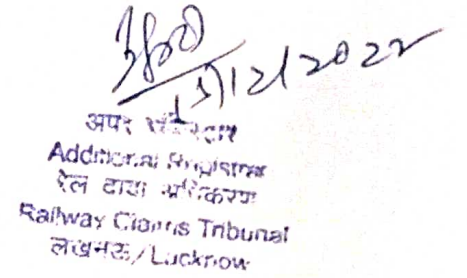 15/12/2022
अपर रजिस्ट्रार
Additional Registrar
रेल दावा अधिकरण
Railway Claims Tribunal
लखनऊ/Lucknow